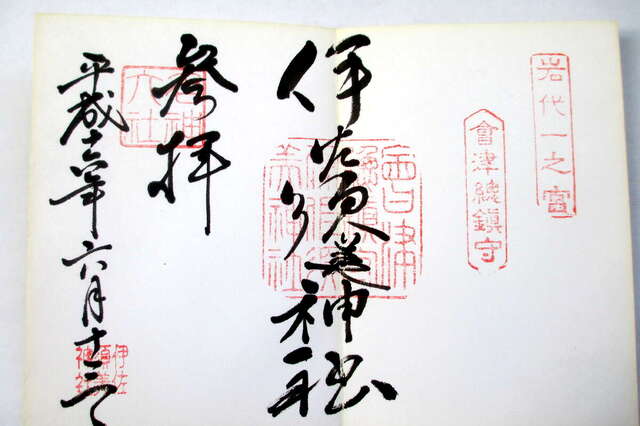 岩代一之宮
會津總鎮守
伊佐須美神社
參拝
名神大社
平成十六年六月十三
伊佐須美神社